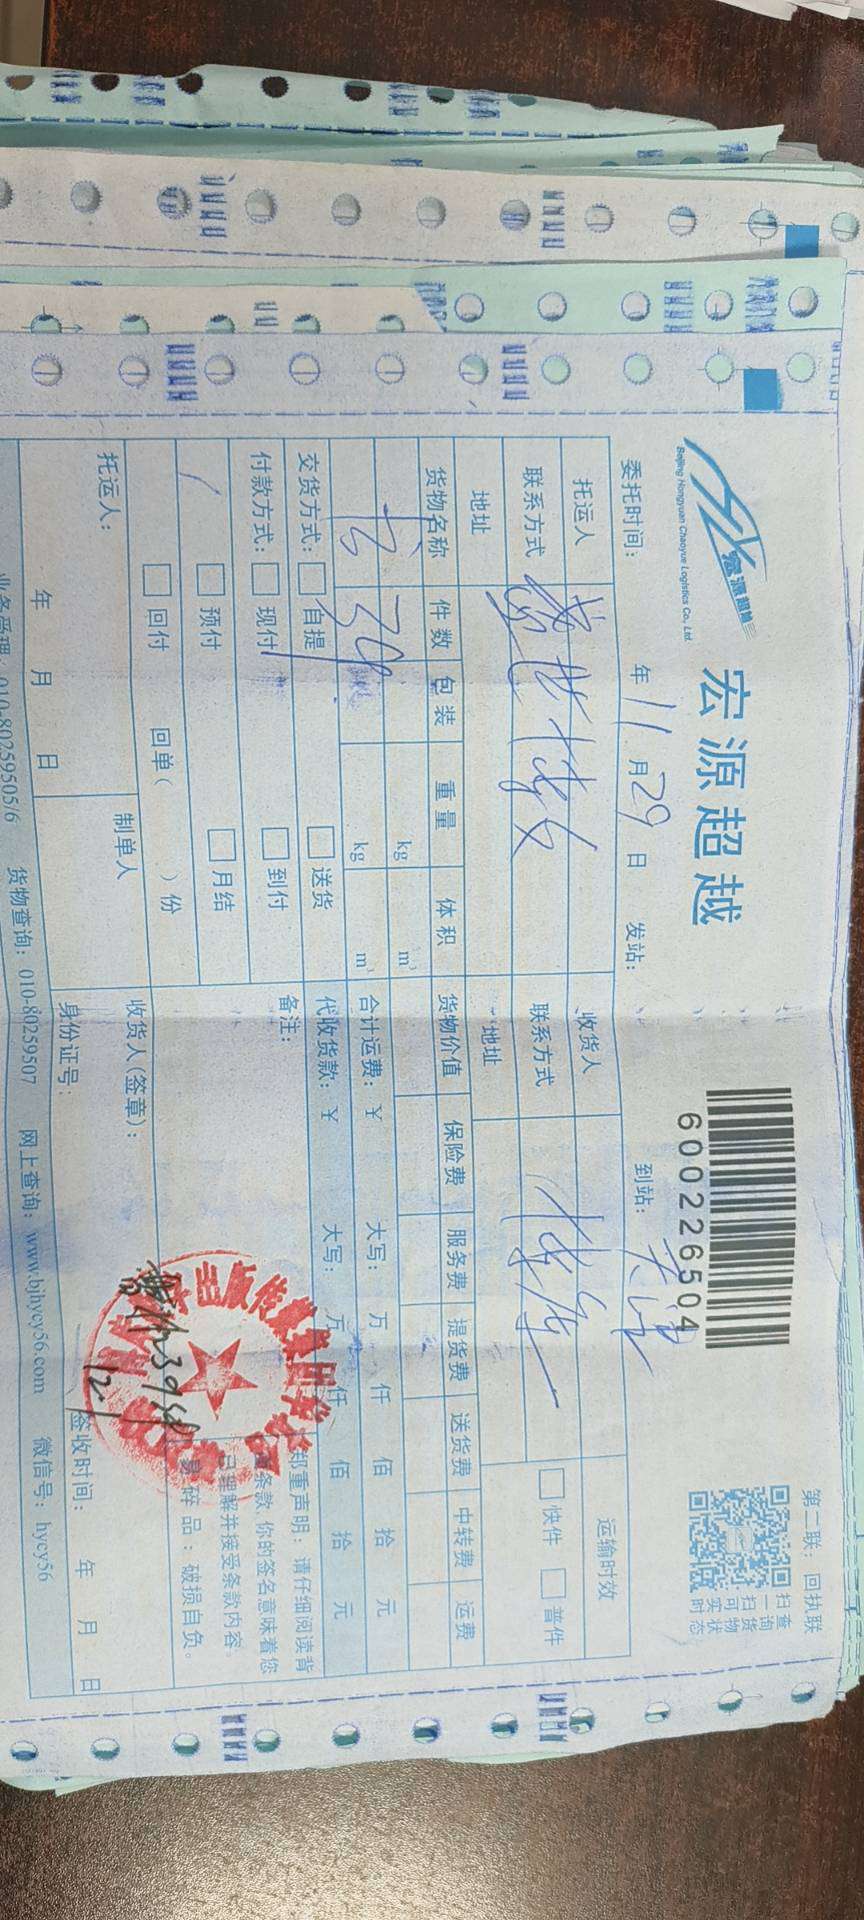 宏源超越
Beijing Hongyuan Chaoyue Logistics Co., Ltd.
宏源超越
600226504
扫一扫 可实时
查询货物状态
第二联：回执联
委托时间： 年 11 月 29 日 发站： 到站：天津
托运人 收货人 运输时效
联系方式 联系方式 快件 普件
地址 地址
货物名称 件数 包装 重量 体积 货物价值 保险费 服务费 提货费 送货费 中转费 运费
kg m³
书 34 kg m³
合计运费：￥ 大写： 万 仟 佰 拾 元
交货方式： 自提 送货
代收货款：￥ 大写： 万 仟 佰 拾 元
付款方式： 现付 到付
预付 月结
回付 回单（ ）份
备注：
郑重声明：请仔细阅读背
条款,你的签名意味着您
已理解并接受条款内容。
易碎品：破损自负。
托运人： 制单人 收货人(签章)：
身份证号：
12.1
年 月 日 签收时间： 年 月 日
业务受理：010-80259505/6 货物查询：010-80259507 网上查询：www.bjhycy56.com 微信号：hycy56